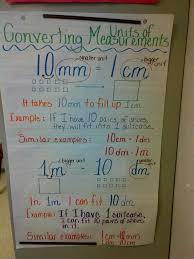 Converting Units of Measurements
smaller unit bigger unit
10 mm = 1 cm
It takes 10mm to fill up 1cm
Example: If I have 10 pairs of shoes,
they will fit into 1 suitcase.
Similar examples: 10cm = 1dm
10 dm = 1m
bigger unit smaller unit
1m = 10 dm
In 1m I can fit 10 dm
Example: If I have 1 suitcase,
I can fit 10 pairs of shoes
in it.
Similar examples: 1cm = 10mm
1dm = 10cm